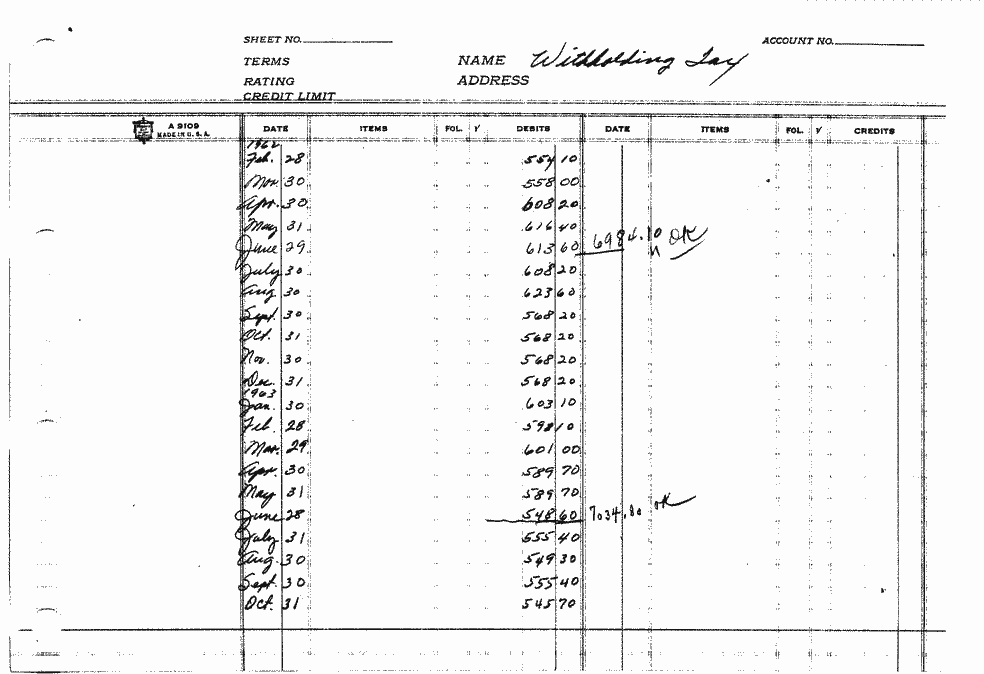 SHEET NO.
ACCOUNT NO.
TERMS
NAME Witholding Tax
RATING
ADDRESS
CREDIT LIMIT
A 9109
MADE IN U.S.A.
DATE ITEMS FOL. √ DEBITS DATE ITEMS FOL. √ CREDITS
1962
Feb. 28 554 10
Mar. 30 558 00
Apr. 30 608 20
May 31 616 40
June 29 613 60 6984.10 OK
July 30 608 20
Aug 30 623 60
Sept. 30 568 20
Oct. 31 568 20
Nov. 30 568 20
Dec. 31 568 20
1963
Jan. 30 603 10
Feb. 28 598 10
Mar. 29 601 00
Apr. 30 589 70
May 31 589 70
June 28 548 60 7034.80 OK
July 31 555 40
Aug. 30 549 30
Sept. 30 555 40
Oct. 31 545 70